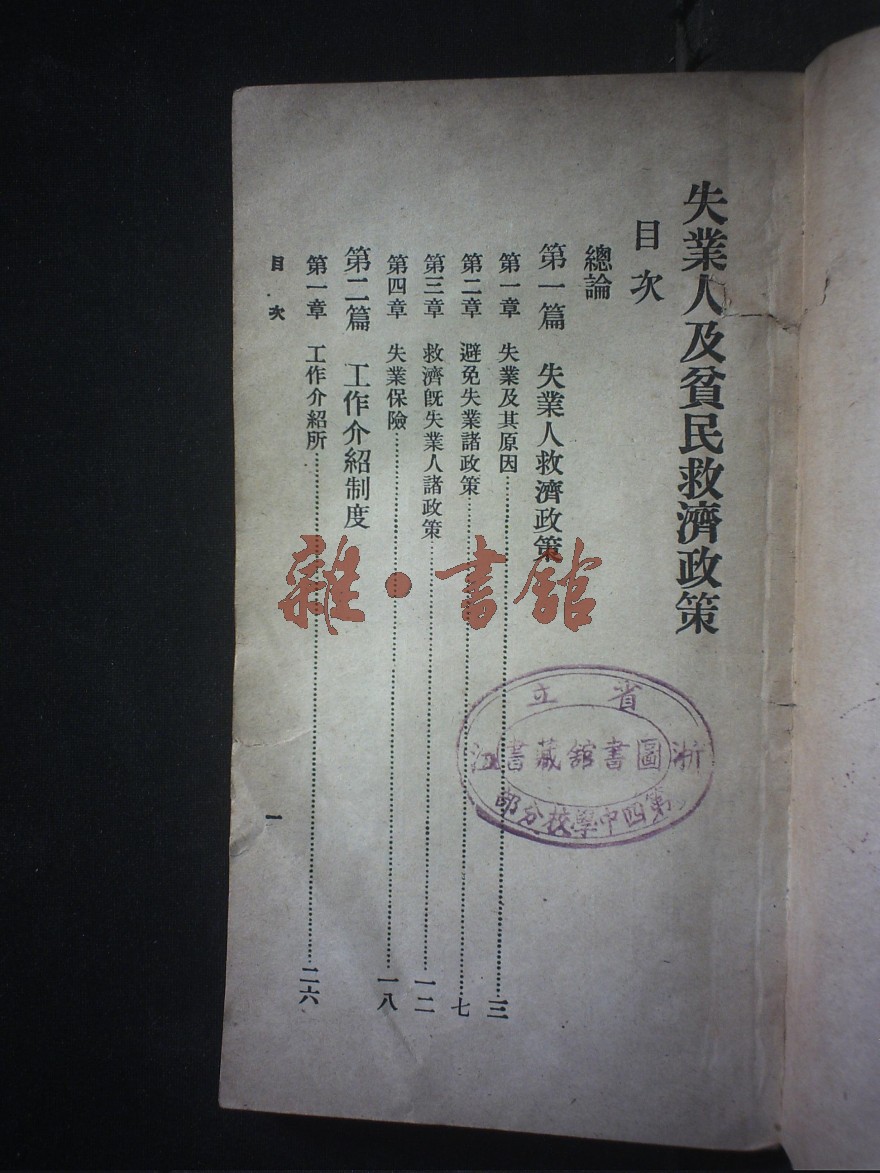 失業人及貧民救濟政策
目次
總論
第一篇 失業人救濟政策
第一章 失業及其原因……三
第二章 避免失業諸政策……七
第三章 救濟旣失業人諸政策……一二
第四章 失業保險……一八
第二篇 工作介紹制度
第一章 工作介紹所……二六
目次
一
雜·書館
省立
浙江
圖書館藏書
第四中學校分部